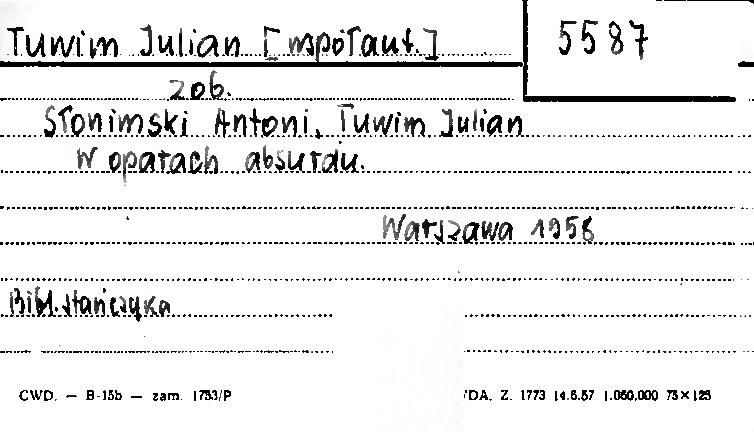 Tuwim Julian [współaut.]
5587
zob.
Słonimski Antoni, Tuwim Julian
W oparach absurdu.
Warszawa 1958
Bibl. Stańczyka
CWD. — B-15b — zam. 1753/P
/DA. Z. 1773 14.6.57 1.050.000 75×125